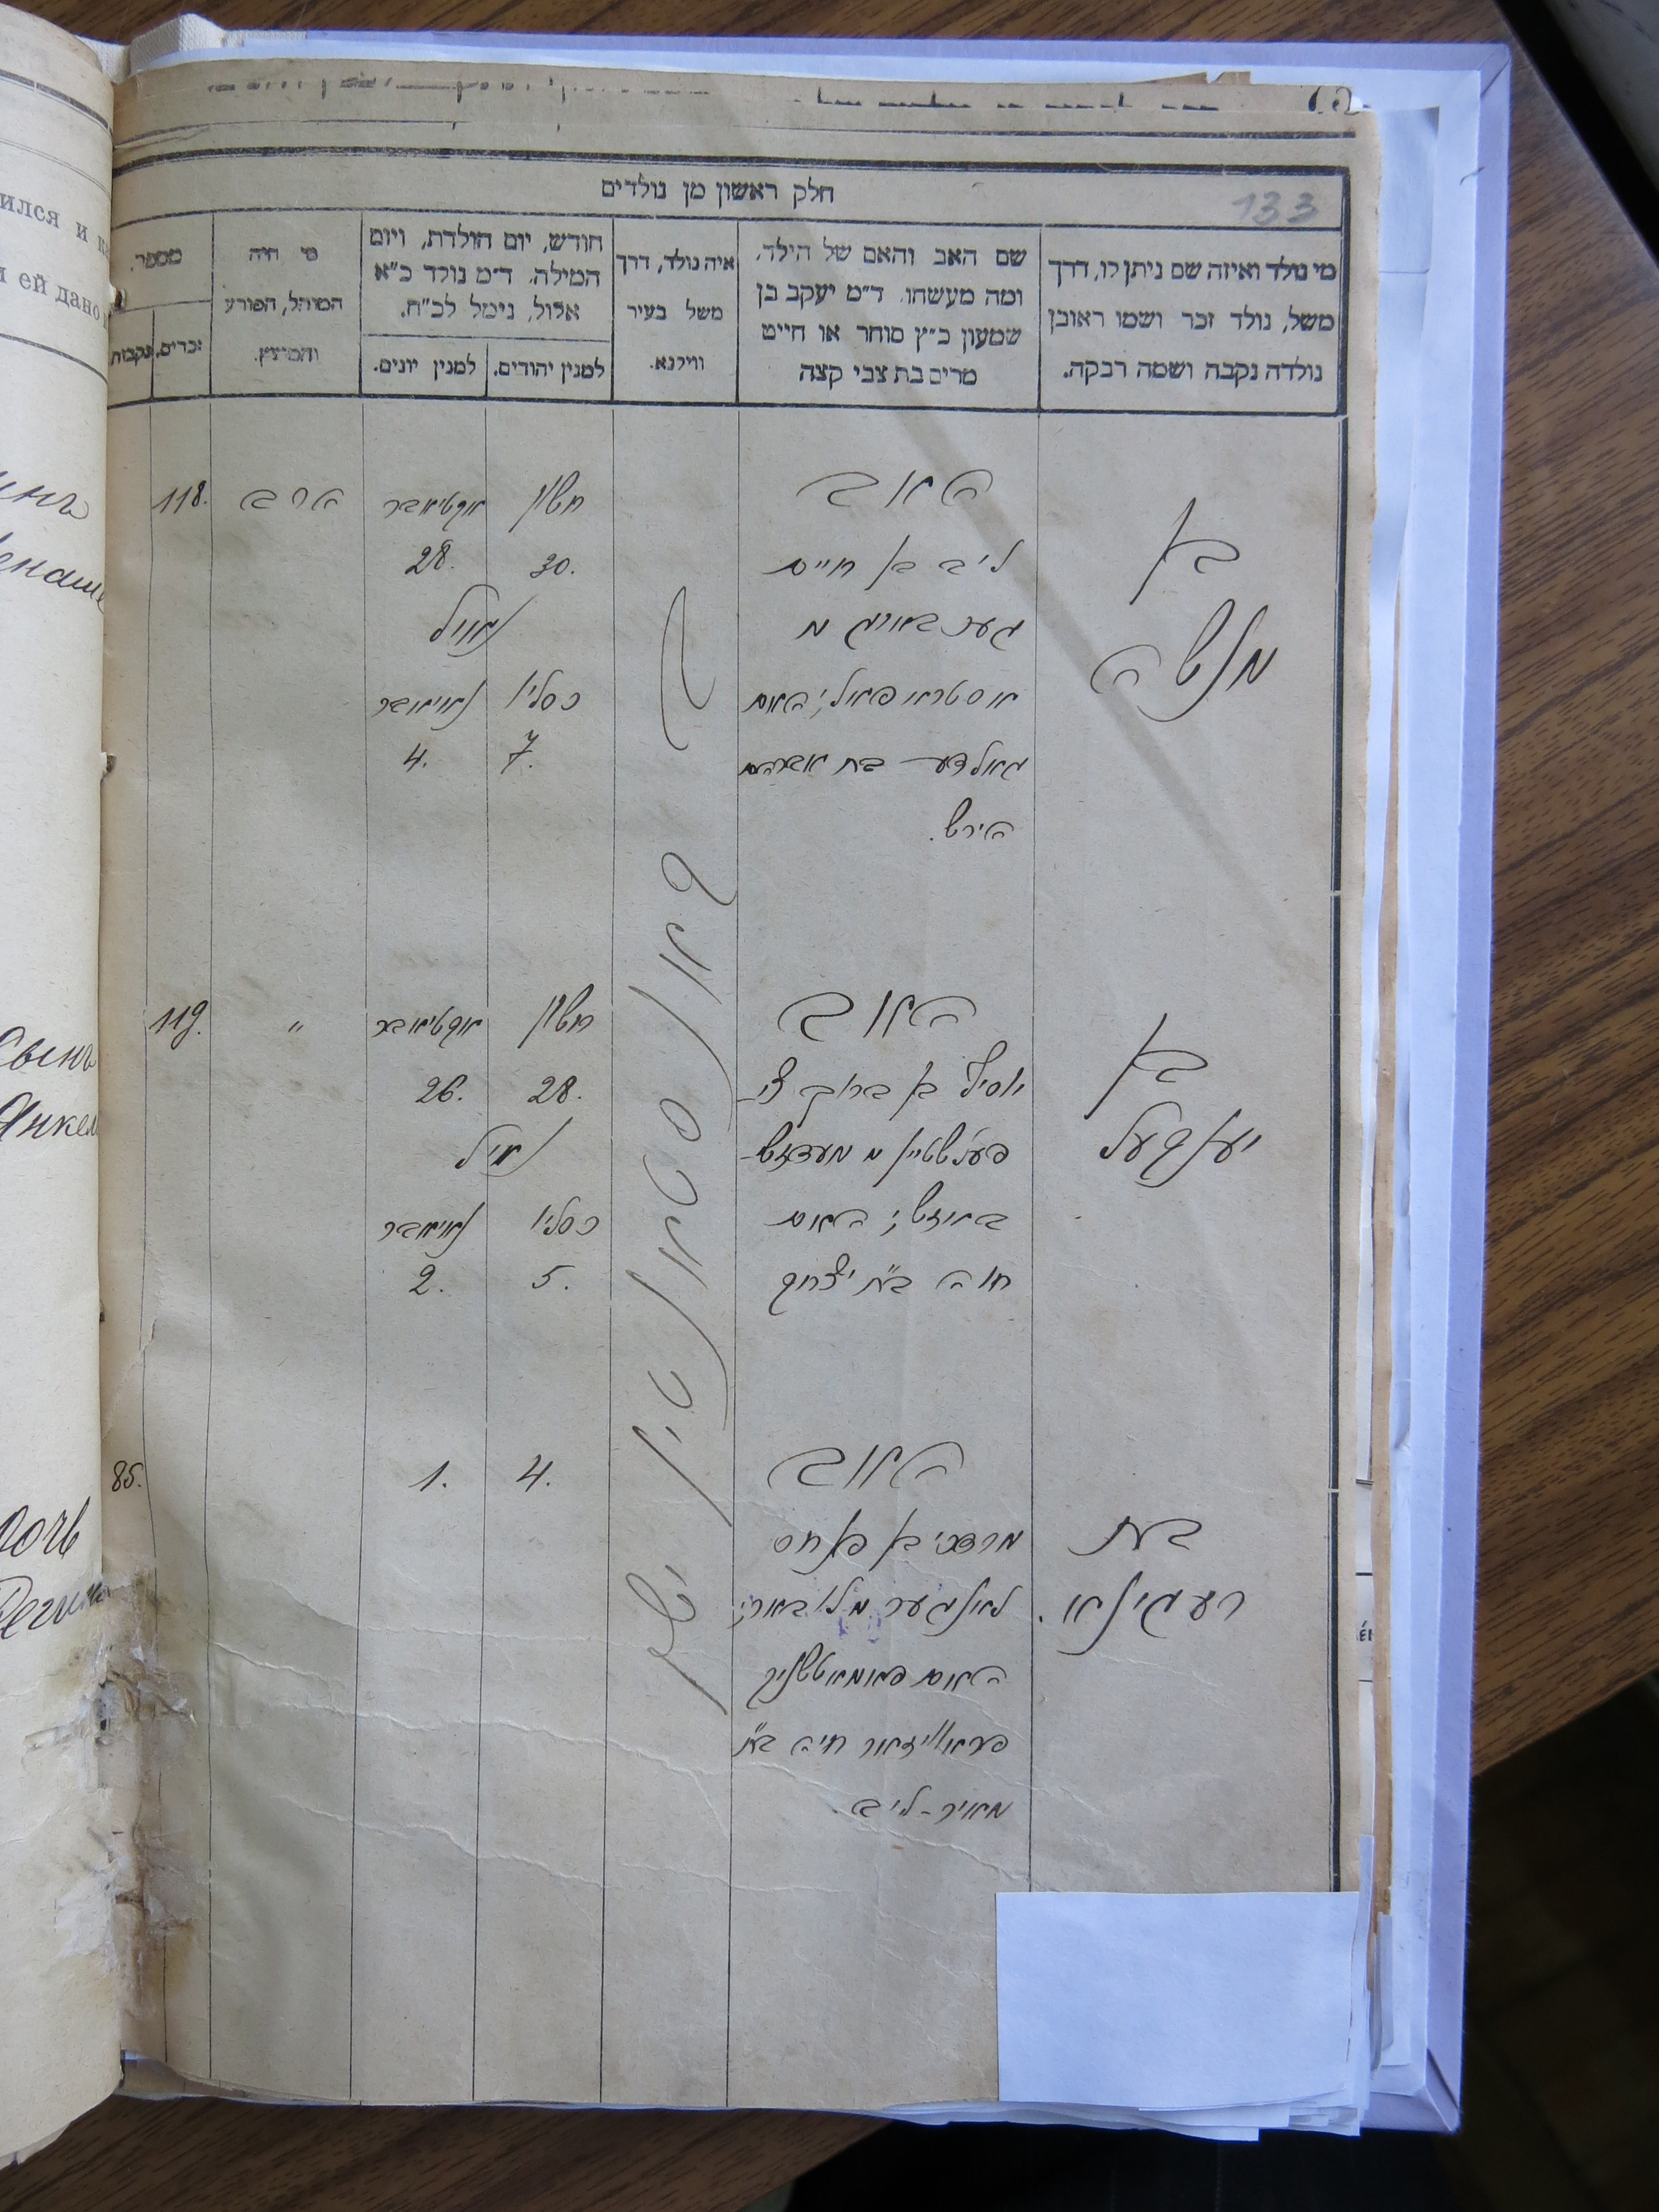 חלק ראשון מן נולדים
133
מי נולד ואיזה שם ניתן לו, דרך
משל, נולד זכר ושמו ראובן
נולדה נקבה ושמה רבקה.
שם האב והאם של הילד,
ומה מעשהו. ד״מ יעקב בן
שמעון כ״ץ סוחר או חייט
מרים בת צבי קצב
איה נולד, דרך
משל בעיר
ווילנא.
חודש, יום הולדת, ויום
המילה. ד״מ נולד כ״א
אלול, נימל לכ״ח.
למנין יהודים.
למנין יונים.
מי היה
המוהל, הפורע
והמוצץ.
מספר.
זכרים.
נקבות
בן
מנשה
האב
ליב בן חיים
מ
האם
גאלדע בת אברהם
הירש.
חשון
30.
אקטיאבר
28.
נימול
כסליו
7.
נאיאבר
4.
הרב
118.
בן
יענקעל
האב
יוסיף בן ברוך
האם
חוה בת יצחק
חשון
28.
אקטיאבר
26.
נימול
כסליו
5.
נאיאבר
2.
״
119.
בת
רעגינא.
האב
מרדכי בן פנחס
האם
חיה בת
מאיר-ליב.
4.
1.
85.
קאנסטאנטין
ישן
ился и
и ей дано
Сынъ
Янкел
дочь
Регина